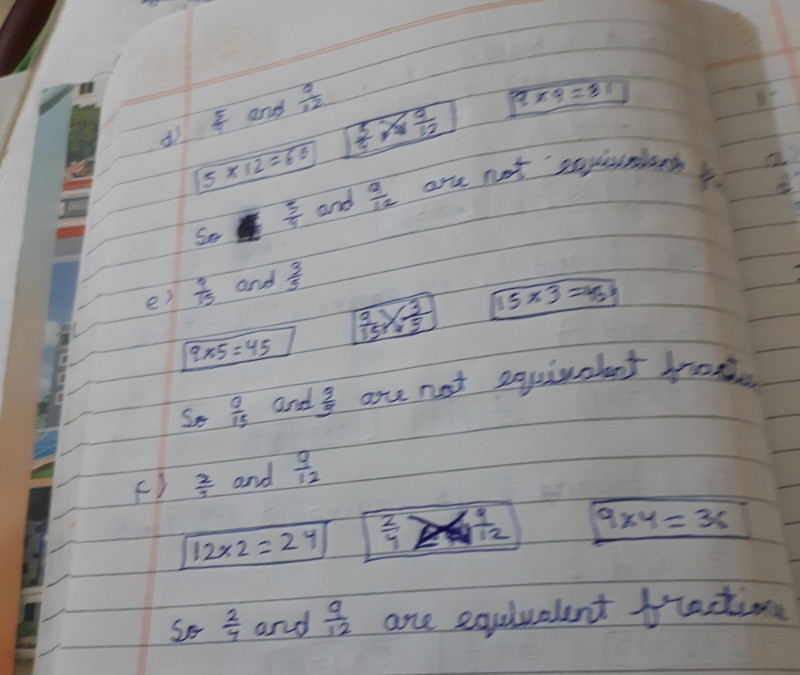 d) 5/9 and 9/12
5 × 12 = 60 5/9 9/12 9 × 9 = 81
So 5/9 and 9/12 are not equivalent
e) 9/15 and 3/5
9×5 = 45 9/15 3/5 15 × 3 = 45
So 9/15 and 3/5 are not equivalent fraction
f) 2/4 and 9/12
12×2 = 24 2/4 9/12 9 × 4 = 36
So 2/4 and 9/12 are equivalent fractions